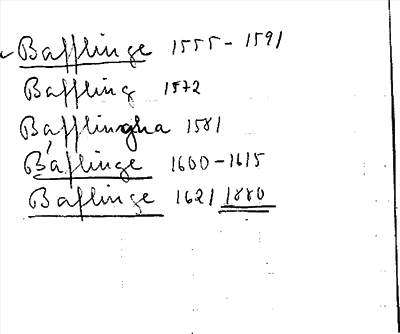 Bafflinge 1555-1591
Baffling 1572
Bafflingha 1581
Baflinge 1600-1615
Baflinge 1621 1880